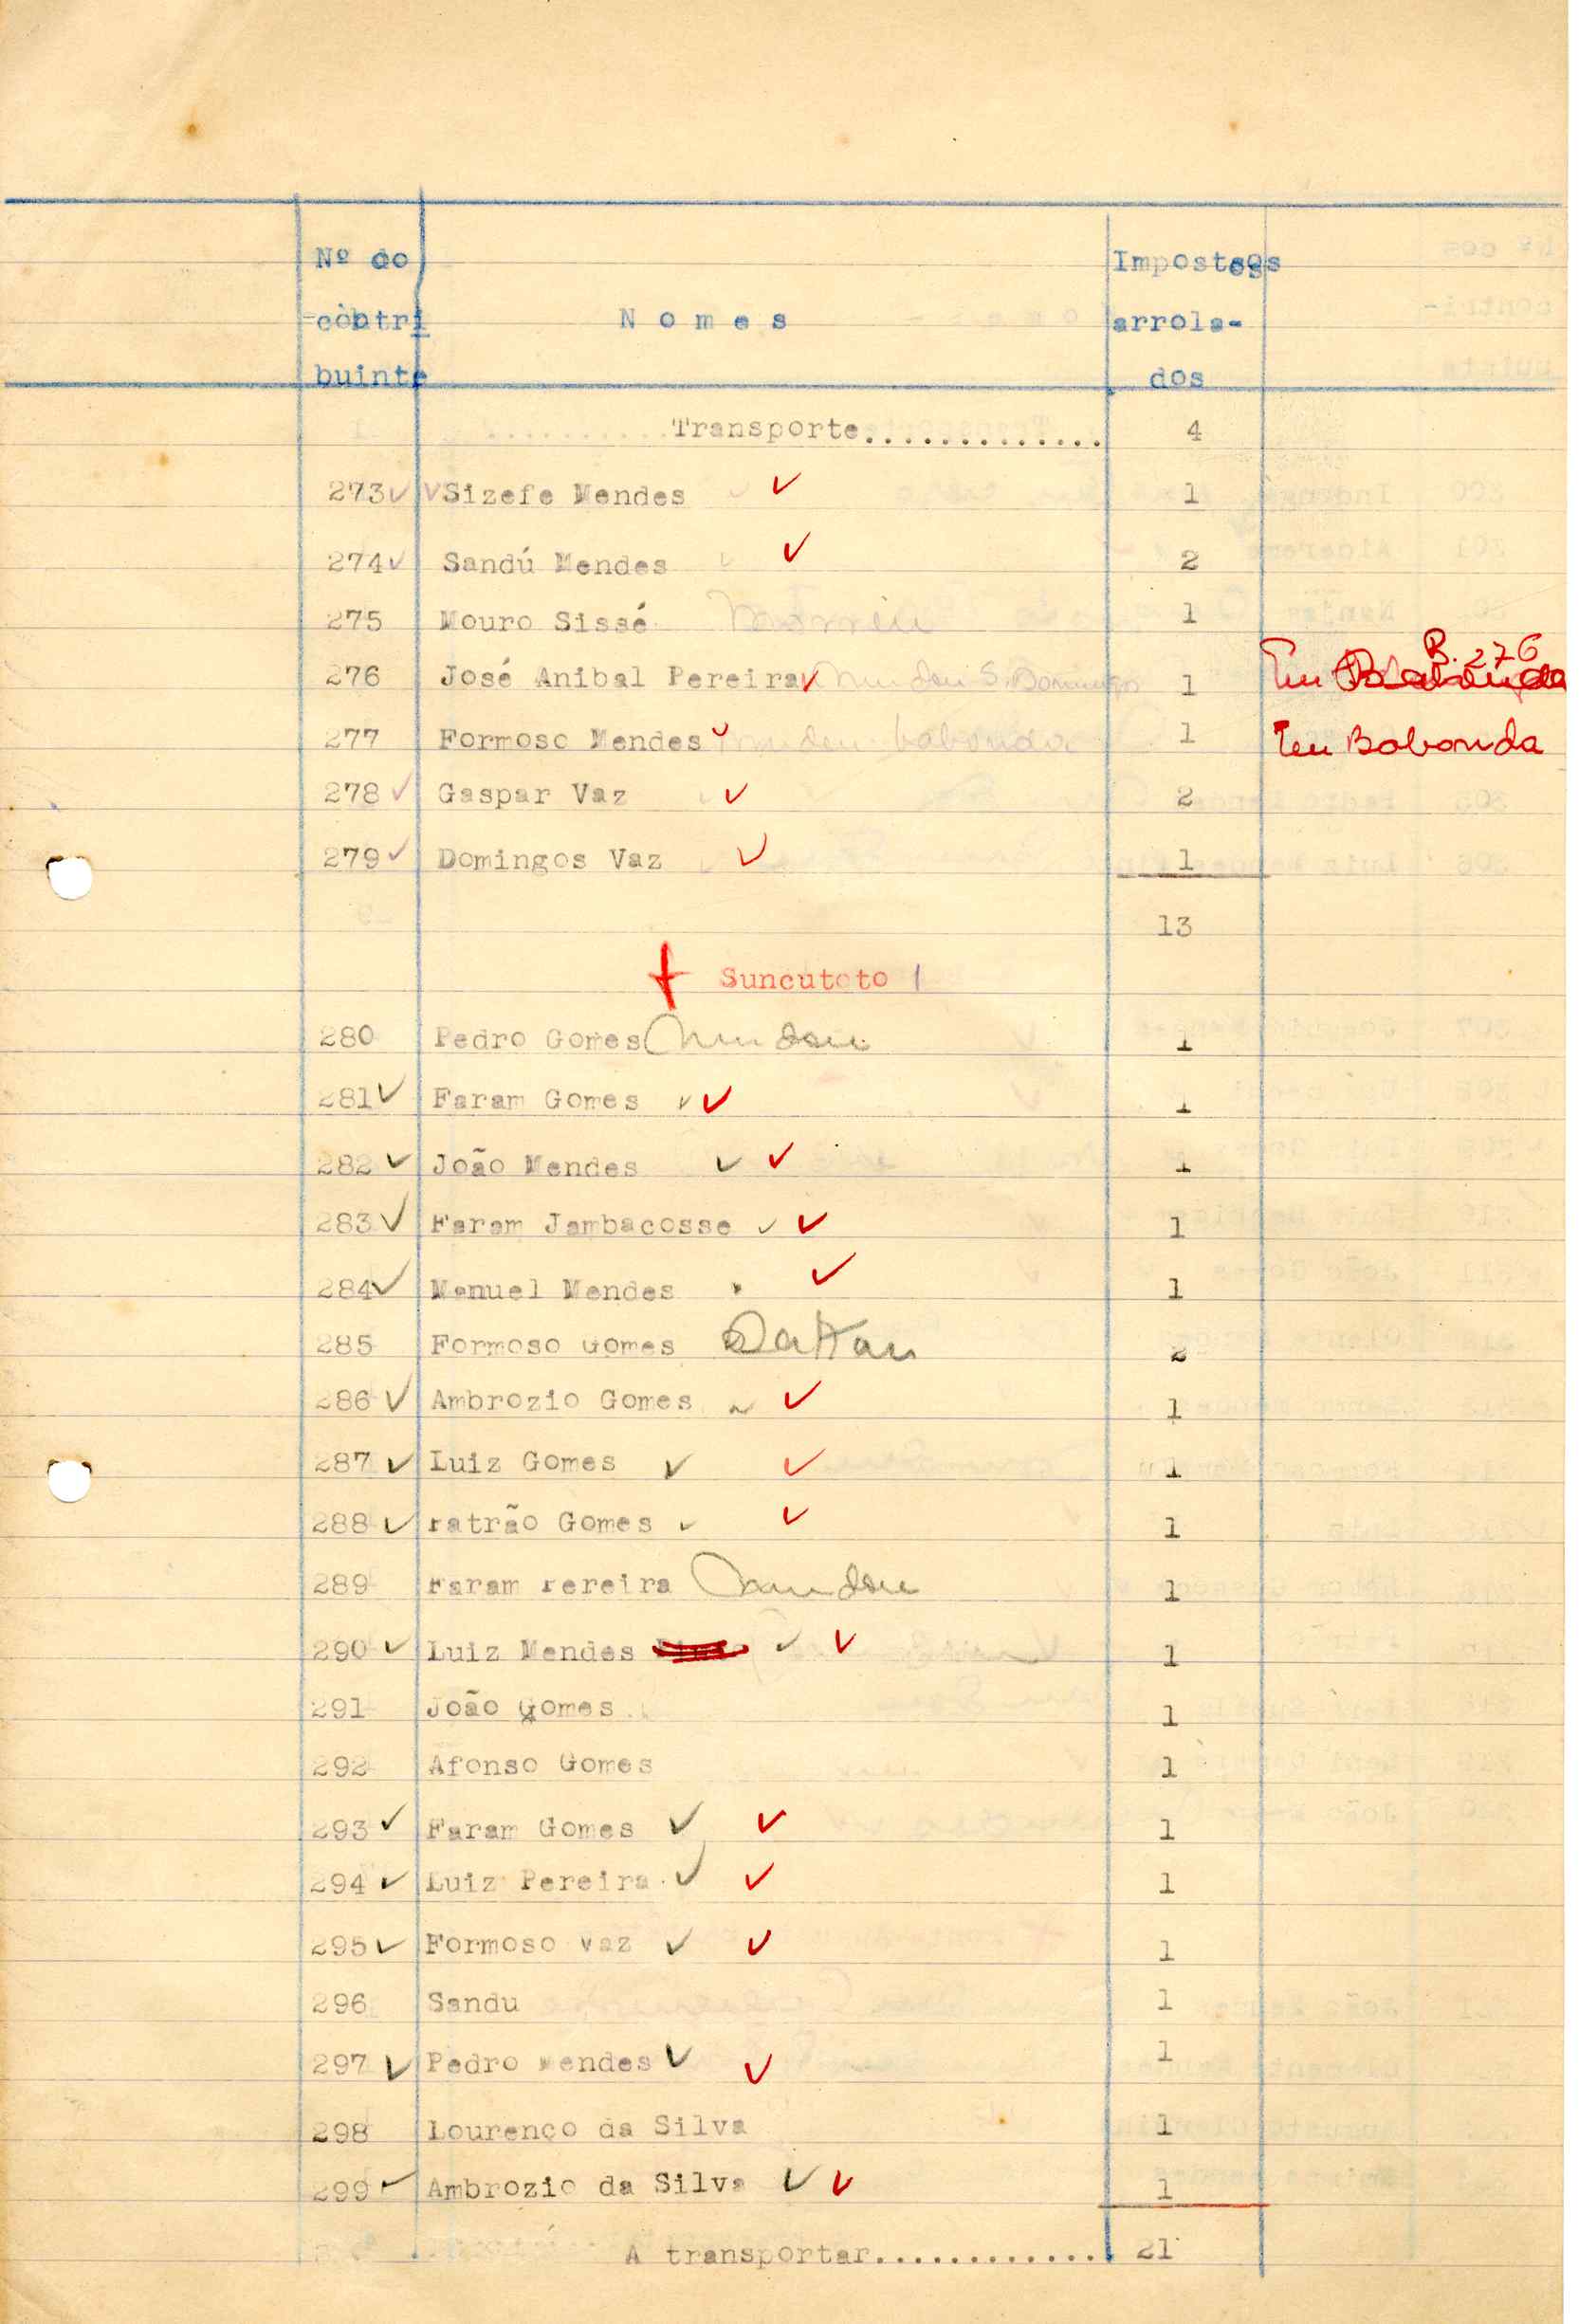 Nº do Impostos
contri N o m e s arrola-
buinte dos
Transporte............. 4
273 ✓ ✓ Sizefe Mendes ✓ 1
274 ✓ Sandú Mendes ✓ 2
275 Mouro Sissé 1
276 José Anibal Pereira ✓ Mudou S. Domingos 1 B. 276
277 Formoso Mendes ✓ mudou babonda 1 Em Babonda
278 ✓ Gaspar Vaz ✓ 2
279 ✓ Domingos Vaz ✓ 1
13
Suncutoto
280 Pedro Gomes Mudou 1
281 ✓ Faram Gomes ✓ ✓ 1
282 ✓ João Mendes ✓ ✓ 1
283 ✓ Faram Jambacosse ✓ ✓ 1
284 ✓ Manuel Mendes ✓ 1
285 Formoso Gomes 2
286 ✓ Ambrozio Gomes ✓ 1
287 ✓ Luiz Gomes ✓ ✓ 1
288 ✓ Patrão Gomes ✓ ✓ 1
289 Faram Pereira Mudou 1
290 ✓ Luiz Mendes ✓ ✓ 1
291 João Gomes 1
292 Afonso Gomes 1
293 ✓ Faram Gomes ✓ ✓ 1
294 ✓ Luiz Pereira ✓ ✓ 1
295 ✓ Formoso Vaz ✓ ✓ 1
296 Sandu 1
297 ✓ Pedro Mendes ✓ ✓ 1
298 Lourenço da Silva 1
299 ✓ Ambrozio da Silva ✓ ✓ 1
A transportar............. 21